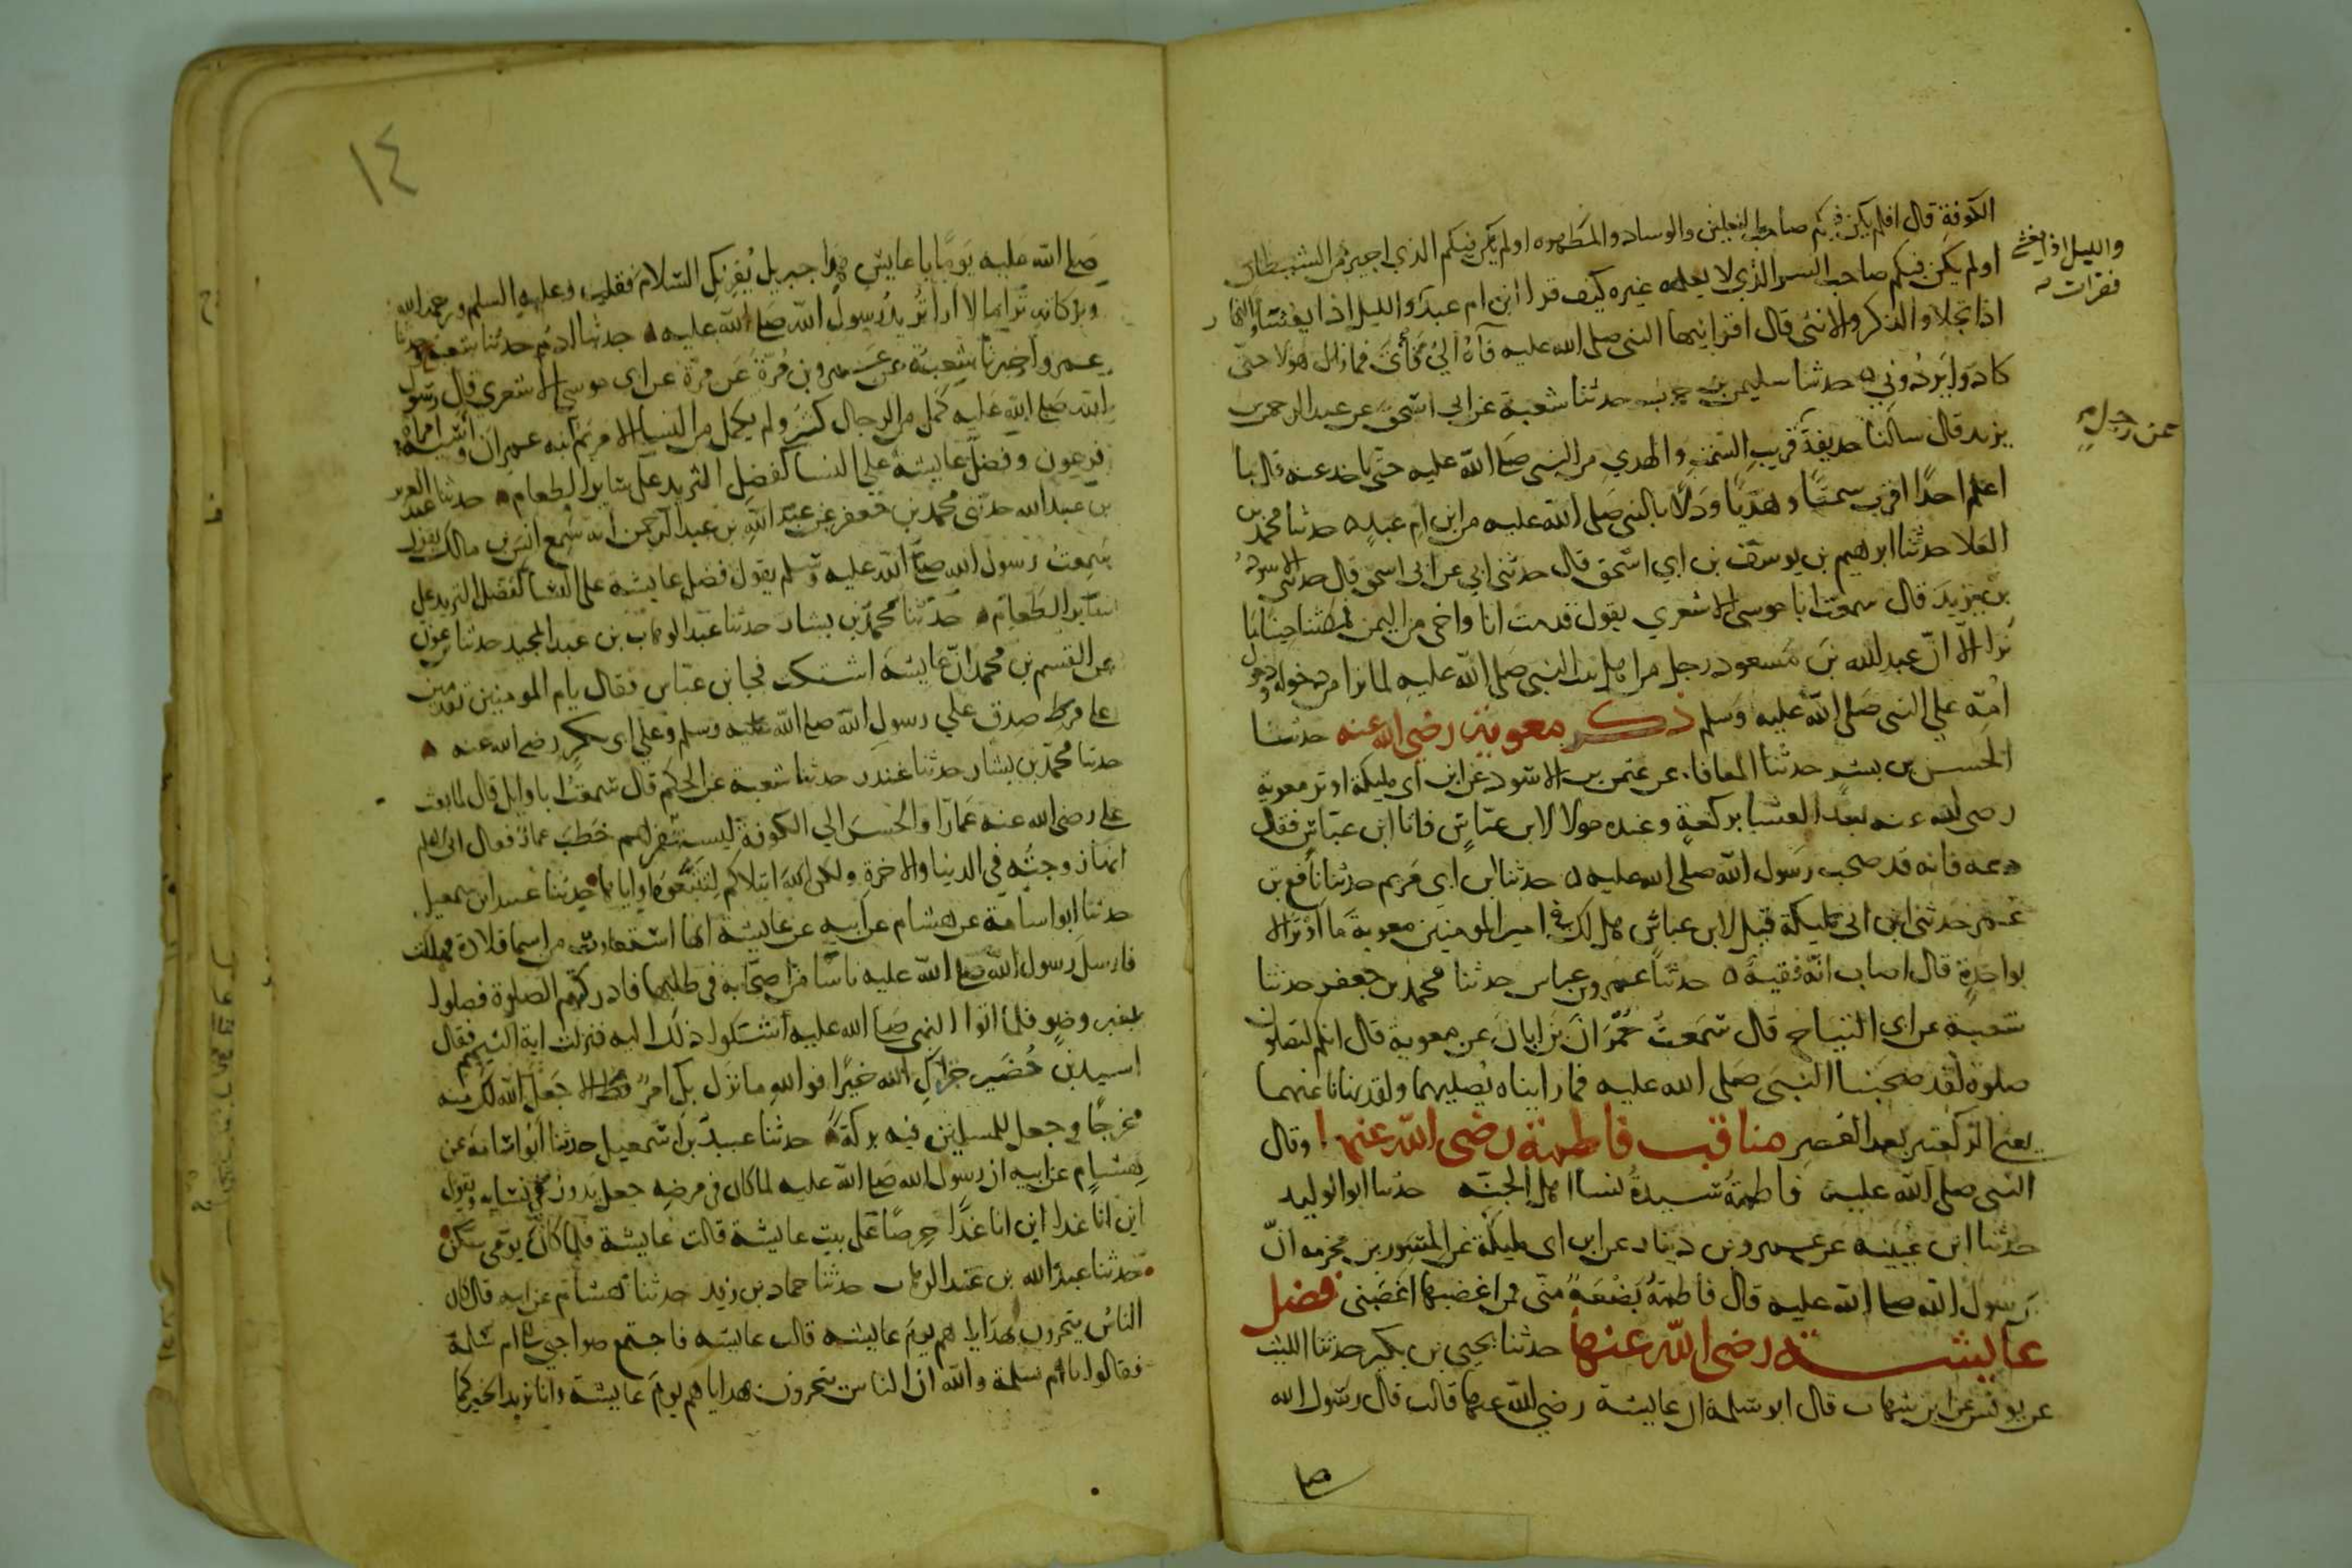 الكوفة قال افلم يكن فيكم صاحب النعلين والوساد والمطهره اولم يكن فيكم الذي اجير من الشيطان
اولم يكن فيكم صاحب السر الذي لا يعلمه غيره كيف قرا ابن ام عبد والليل اذا يغشى والنهار
والليل اذا يغشى
فقرات
اذا تجلا والذكر والانثى قال اقرانيها النبي صلى الله عليه فاه الي في فما زال هولا حتى
كادوا يردوني ه حدثنا سليمن بن حرب حدثنا شعبة عن ابي اسحق عن عبد الرحمن بن
يزيد قال سالنا حذيفة
عن رجل
قريب السمت والهدي من النبي صلى الله عليه حتى ناخذ عنه قال ما
اعلم احدا اقرب سمتا وهديا ودلا بالنبي صلى الله عليه من ابن ام عبد ه حدثنا محمد بن
العلا حدثنا ابرهيم بن يوسف بن ابي اسحق قال حدثني ابي عن ابي اسحق قال حدثني الاسود
بن يزيد قال سمعت ابا موسى الاشعري يقول قدمت انا واخي من اليمن فمكثنا حينا ما
نرا الا ان عبد الله بن مسعود رجل من اهل بيت النبي صلى الله عليه لما نرا من دخوله ودخول
امه على النبي صلى الله عليه وسلم ذكر معوية رضي الله عنه حدثنا
الحسن بن بشر حدثنا المعافا عن عثمن بن الاسود عن ابن ابي مليكة اوتر معوية
رضي الله عنه بعد العشا بركعة وعنده مولا لابن عباس فاتا ابن عباس فقال
دعه فانه قد صحب رسول الله صلى الله عليه ه حدثنا ابن ابي مريم حدثنا نافع بن
عمر حدثني ابن ابي مليكة قيل لابن عباس هل لك في امير المومنين معوية ما اوتر الا
بواحدة قال اصاب انه فقيه ه حدثنا عمرو بن عباس حدثنا محمد بن جعفر حدثنا
شعبة عن ابي التياح قال سمعت حمران بن ابان عن معوية قال انكم لتصلون
صلوة لقد صحبنا النبي صلى الله عليه فما رايناه يصليهما ولقد نهانا عنهما
يعني الركعتين بعد العصر مناقب فاطمة رضي الله عنها وقال
النبي صلى الله عليه فاطمة سيدة نسا اهل الجنه حدثنا ابو الوليد
حدثنا ابن عيينه عن عمرو بن دينار عن ابن ابي مليكة عن المسور بن مخرمه ان
رسول الله صلى الله عليه قال فاطمة بضعة مني فمن اغضبها اغضبني فضل
عايشة رضي الله عنها حدثنا يحيى بن بكير حدثنا الليث
عن يونس عن ابن شهاب قال ابو سلمة ان عايشة رضي الله عنها قالت قال رسول الله
١٤
صلى الله عليه يوما يا عايش هذا جبريل يقرئك السلام فقلت وعليه السلم ورحمة الله
وبركاته ترا ما لا ارا تريد رسول الله صلى الله عليه ه حدثنا ادم حدثنا شعبة حدثنا
عمرو اخبرنا شعبة عن عمرو بن مرة عن مرة عن ابي موسى الاشعري قال رسول
الله صلى الله عليه كمل من الرجال كثير ولم يكمل من النسا الا مريم ابنه عمران واسيه امراه
فرعون وفضل عايشة على النسا كفضل الثريد على ساير الطعام ه حدثنا عبد العزيز
بن عبد الله حدثني محمد بن جعفر عن عبد الله بن عبد الرحمن انه سمع انس بن مالك يقول
سمعت رسول الله صلى الله عليه وسلم يقول فضل عايشة على النسا كفضل الثريد على
ساير الطعام ه حدثنا محمد بن بشار حدثنا عبد الوهاب بن عبد المجيد حدثنا بن عون
عن القسم بن محمد ان عايشة اشتكت فجا ابن عباس فقال يام المومنين تقدمين
على فرط صدق على رسول الله صلى الله عليه وسلم وعلى ابي بكر رضي الله عنه ه
حدثنا محمد بن بشار حدثنا غندر حدثنا شعبة عن الحكم قال سمعت ابا وايل قال لما بعث
على رضي الله عنه عمارا والحسن الى الكوفة ليستنفرهم خطب عمار فقال اني لاعلم
انها زوجته في الدنيا والاخرة ولكن الله ابتلاكم لتتبعوه او اياها ه حدثنا عبيد بن اسمعيل
حدثنا ابو اسامة عن هشام عن ابيه عن عايشة انها استعارت من اسما قلادة فهلكت
فارسل رسول الله صلى الله عليه ناسا من اصحابه في طلبها فادركتهم الصلوة فصلوا
بغير وضو فلما اتوا النبي صلى الله عليه اشتكوا ذلك اليه فنزلت اية التيمم فقال
اسيد بن حضير جزاك الله خيرا فوالله ما نزل بك امر قط الا جعل الله لك منه
مخرجا وجعل للمسلمين فيه بركة ه حدثنا عبيد بن اسمعيل حدثنا ابو اسامة عن
هشام عن ابيه ان رسول الله صلى الله عليه لما كان في مرضه جعل يدور في نسايه ويقول
اين انا غدا اين انا غدا حرصا على بيت عايشة قالت عايشة فلما كان يومي سكن
حدثنا عبد الله بن عبد الوهاب حدثنا حماد بن زيد حدثنا هشام عن ابيه قال كان
الناس يتحرون بهداياهم يوم عايشه قالت عايشه فاجتمع صواحبي الى ام سلمة
فقالوا يا ام سلمة والله ان الناس يتحرون بهداياهم يوم عايشة وانا نريد الخير كما